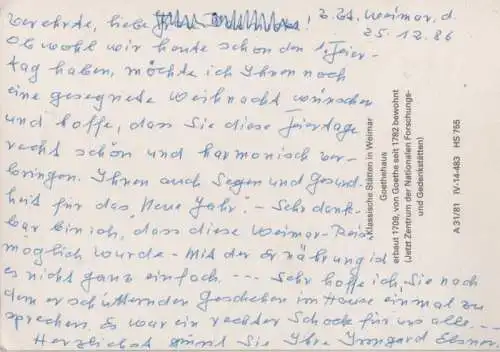 Verehrte, liebe ! z.Zt. Weimar, d.
25.12.86
Obwohl wir heute schon den 1. Feier-
tag haben, möchte ich Ihnen noch
eine gesegnete Weihnacht wünschen
und hoffe, dass Sie diese Feiertage
recht schön und harmonisch ver-
bringen. Ihnen auch Segen und Gesund-
heit für das "Neue Jahr". - Sehr dank-
bar bin ich, dass diese Weimar-Reise
möglich wurde - Mit der Ernährung ist
es nicht ganz einfach --- Sehr hoffe ich, Sie nach
dem erschütternden Geschehen im Hause einmal zu
sprechen. Es war ein rechter Schock für uns alle. ---
Herzlichst grüsst Sie Ihre Irmgard Elsner
„Klassische Stätten in Weimar
Goethehaus
erbaut 1709, von Goethe seit 1782 bewohnt
(Jetzt Zentrum der Nationalen Forschungs-
und Gedenkstätten)
A 31/81 IV-14-483 HS 765